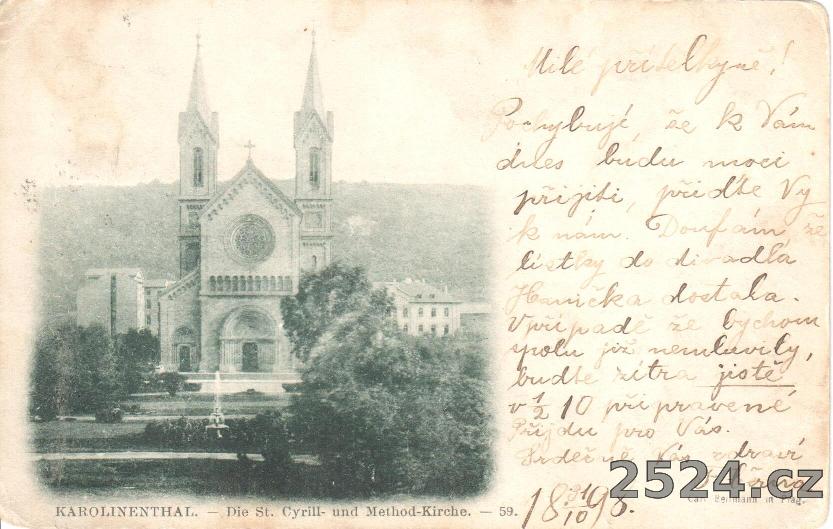 Milé přítelkyně!
Pochybuji, že k Vám
dnes budu moci
přijíti, přiďte Vy
k nám. Doufám že
lístky do divadla
Hanička dostala.
V případě že bychom
spolu již nemluvily,
buďte zítra jistě
v ½ 10 připravené
Přijdu pro Vás.
Srdečně Vás zdraví
2524.cz
KAROLINENTHAL. — Die St. Cyrill- und Method-Kirche. — 59.
Carl Bellmann in Prag.